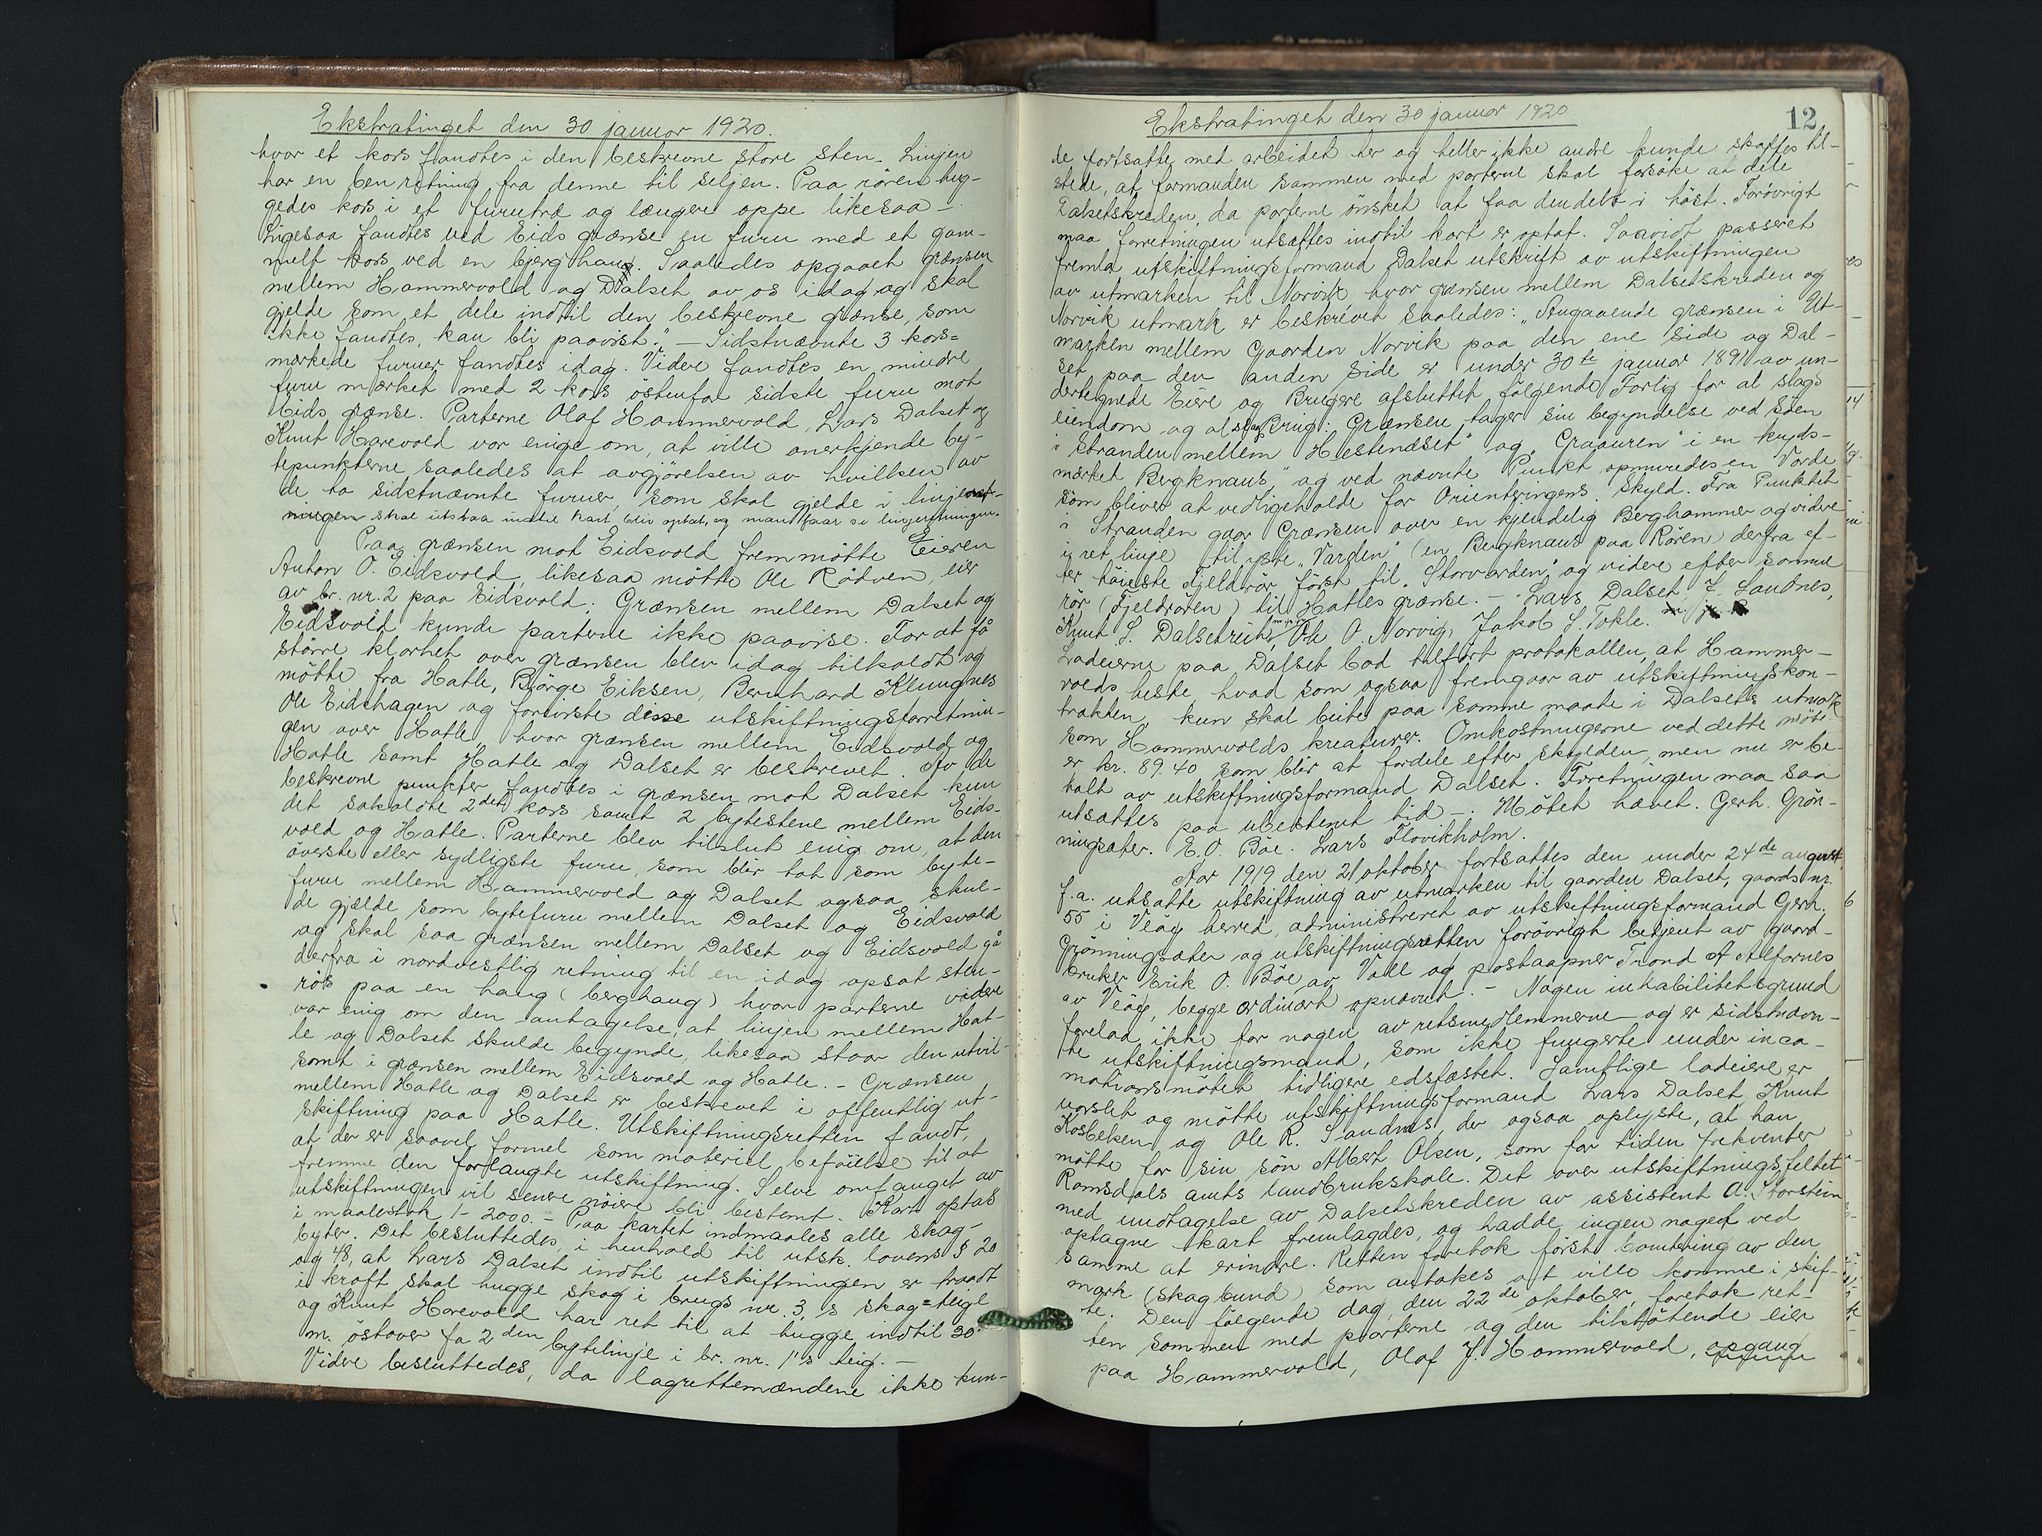 Ekstratinget den 30 januar 1920.
hvor et kors fandtes i den beskrevne store sten. Linjen
har en ben retning fra denne til Siljen. Paa rören hug-
gedes kors i et furutræ og længere oppe likesaa –
Ligesaa fandtes ved Eids grænse en furu med et gam-
melt kors ved en berghaug. Saaledes opgaaet grænsen
mellem Hammervold og Dalset av os idag og skal
gjelde som et dele indtil den beskrevne grænse, som
ikke fandtes, kan bli paavist." – Sidstnævnte 3 kors=
merkede furuer fandtes idag. Videre fandtes en mindre
furu mærket med 2 kors östenfor sidste furu mot
Eids grænse. Parterne Olaf Hammervold, Lars Dalset og
Knut Harevold var enige om, at ville anerkjende by-
tepunkterne saaledes at avgjörelsen av hvilken av
de to sidstnævnte furuer, som skal gjelde i linjeret-
ningen skal utstaa indtil kart blir optat, og man faar se linjeretningen.
Paa grænsen mot Eidsvold fremmötte Eieren
Anton O. Eidsvold, likesaa mötte Ole Rödven, eier
av br. nr. 2 paa Eidsvold. Grænsen mellem Dalset og
Eidsvold kunde parterne ikke paavise. For at få
större klarhet over grænsen blev idag tilkaldt og
mötte fra Hatle, Börge Eiksen, Bernhard Klungnes
Ole Eidshagen og foreviste disse utskiftningsforretnin-
gen over Hatle hvor grænsen mellem Eidsvold og
Hatle samt Hatle og Dalset er beskrevet. Av de
beskrevne punkter fandtes i grænsen mot Dalset kun
det sakaldte 2det kors samt 2 bytestene mellem Eids-
vold og Hatle. Parterne blev tilslut enig om, at den
överste eller sydligste furu, som blir tat som byte-
furu mellem Hammervold og Dalset ogsaa skul-
de gjælde som bytefuru mellem Dalset og Eidsvold
og skal saa grænsen mellem Dalset og Eidsvold gå
derfra i nordvestlig retning til en idag opsat sten-
rös paa en haug (berghaug) hvor parterne videre
var enig om den antagelse, at linjen mellem Hat-
le og Dalset skulde begynde, likesaa staar den utvil-
somt i grænsen mellem Eidsvold og Hatle. – Grænsen
mellem Hatle og Dalset er beskrevet i offentlig ut-
skiftning paa Hatle. Utskiftningsretten fandt,
at der er saavel formel som materiel beföielse til at
fremme den forlangte utskiftning. Selve omfanget av
utskiftningen vil senere nöiere bli bestemt. Kart optas
i maalestok 1-2000. – Paa kartet indmaales alle skog-
byter. Det besluttedes i henhold til utsk. lovens § 20
og 48, at Lars Dalset indtil utskiftningen er traadt
i kraft skal hugge skog i brugs nr. 3,s skog=teige
og Knut Harevold har ret til at hugge indtil 30
m. östover fra 2den bytelinje i br. nr. 1's teig. –
Videre besluttedes, da lagrettemændene ikke kun-
Ekstratinget den 30 januar 1920
12
de fortsatte med arbeidet her og heller ikke andre kunde skaffes til-
stede, at formanden sammen med parterne skal forsöke at dele
Dalsetskreden, da parterne önsket at faa den delt i höst. Forövrigt
maa forretningen utsættes indtil kart er optat. Saavidt passeret
fremla utskiftningsformand Dalset utskrift av utskiftningen
av utmarken til Norvik hvor grænsen mellem Dalsetskreden og
Norvik utmark er beskrevet saaledes: „Angaaende grænsen i Ut-
marken mellem Gaarden Norvik paa den ene Side og Dal-
set paa den anden Side er under 30te januar 1891 av un-
dertegnede Eiere og Brugere afsluttet fölgende Forlig for al slags
eiendom og al slags Brug: Grænsen tager sin begyndelse ved Söen
i Stranden mellem „Hestenæset" og „Graauren" i en kryds-
mærket Bergknaus, og ved nævnte Punkt opmuredes en Varde
som bliver at vedligeholde for Orienteringens Skyld. Fra Punktet
i Stranden gaar Grænsen over en kjendelig Berghammer og videre
i ret linje til yste „Varden" (en Bergknaus paa Rören) derfra ef-
ter höieste Fjeldrör först til „Storvarden" og videre efter samme
rör (Fjeldrören) til Hatles grænse. – Lars Dalset, J. Sandnes,
Knut S. Dalsetreith, Ole O. Norvig, Jakob S. Tokle.
Ladeierne paa Dalset bad tilfört protokollen, at Hammer-
volds heste hvad som ogsaa fremgaar av utskiftningskon-
trakten, kun skal beite paa samme maate i Dalsets utmark
som Hammervolds kreaturer. Omkostningerne ved dette möte
er kr. 89.40 som blir at fordele efter skylden men nu er be-
talt av utskiftningsformand Dalset. Forretningen maa saa
utsættes paa ubestemt tid. – Mötet hævet. Gerh. Grön-
ningsæter. E. O. Böe. Lars Flovikholm.
Aar 1919 den 21 oktober fortsattes den under 24de august
f.a. utsatte utskiftning av utmarken til gaarden Dalset, gaards nr.
55 i Veöy herred, administreret av utskiftningsformand Gerh.
Grönningsæter og utskiftningsretten forövrigt betjent av gaard-
bruker Erik O. Böe av Voll og postaapner Trond A Alfarnes
av Veöy, begge ordinært opnævnt. – Nogen inhabilitetsgrund
forelaa ikke for nogen av retsmedlemmerne og er sidstnævn-
te utskiftningsmand, som ikke fungerte under inca-
mationsmötet tidligere edsfæstet. Samtlige lodeiere er
varslet og mötte utskiftningsformand Lars Dalset, Knut
Kosbeken og Ole R. Sandnes, der ogsaa oplyste, at han
mötte for sin sön Albert Olsen, som for tiden frekventer
Romsdals amts landbrukskole. Det over utskiftningsfeltet
med undtagelse av Dalsetskreden av assistent O. Storstein
optagne kart fremlagdes, og hadde ingen noget ved
samme at erindre. Retten foretok först bonitering av den
mark (skogbund) som antakes at ville komme i skif-
te. Den fölgende dag, den 22de oktober, foretok ret-
ten sammen med parterne og den tilstötende eier
paa Hammervold, Olaf J. Hammervold, opgang